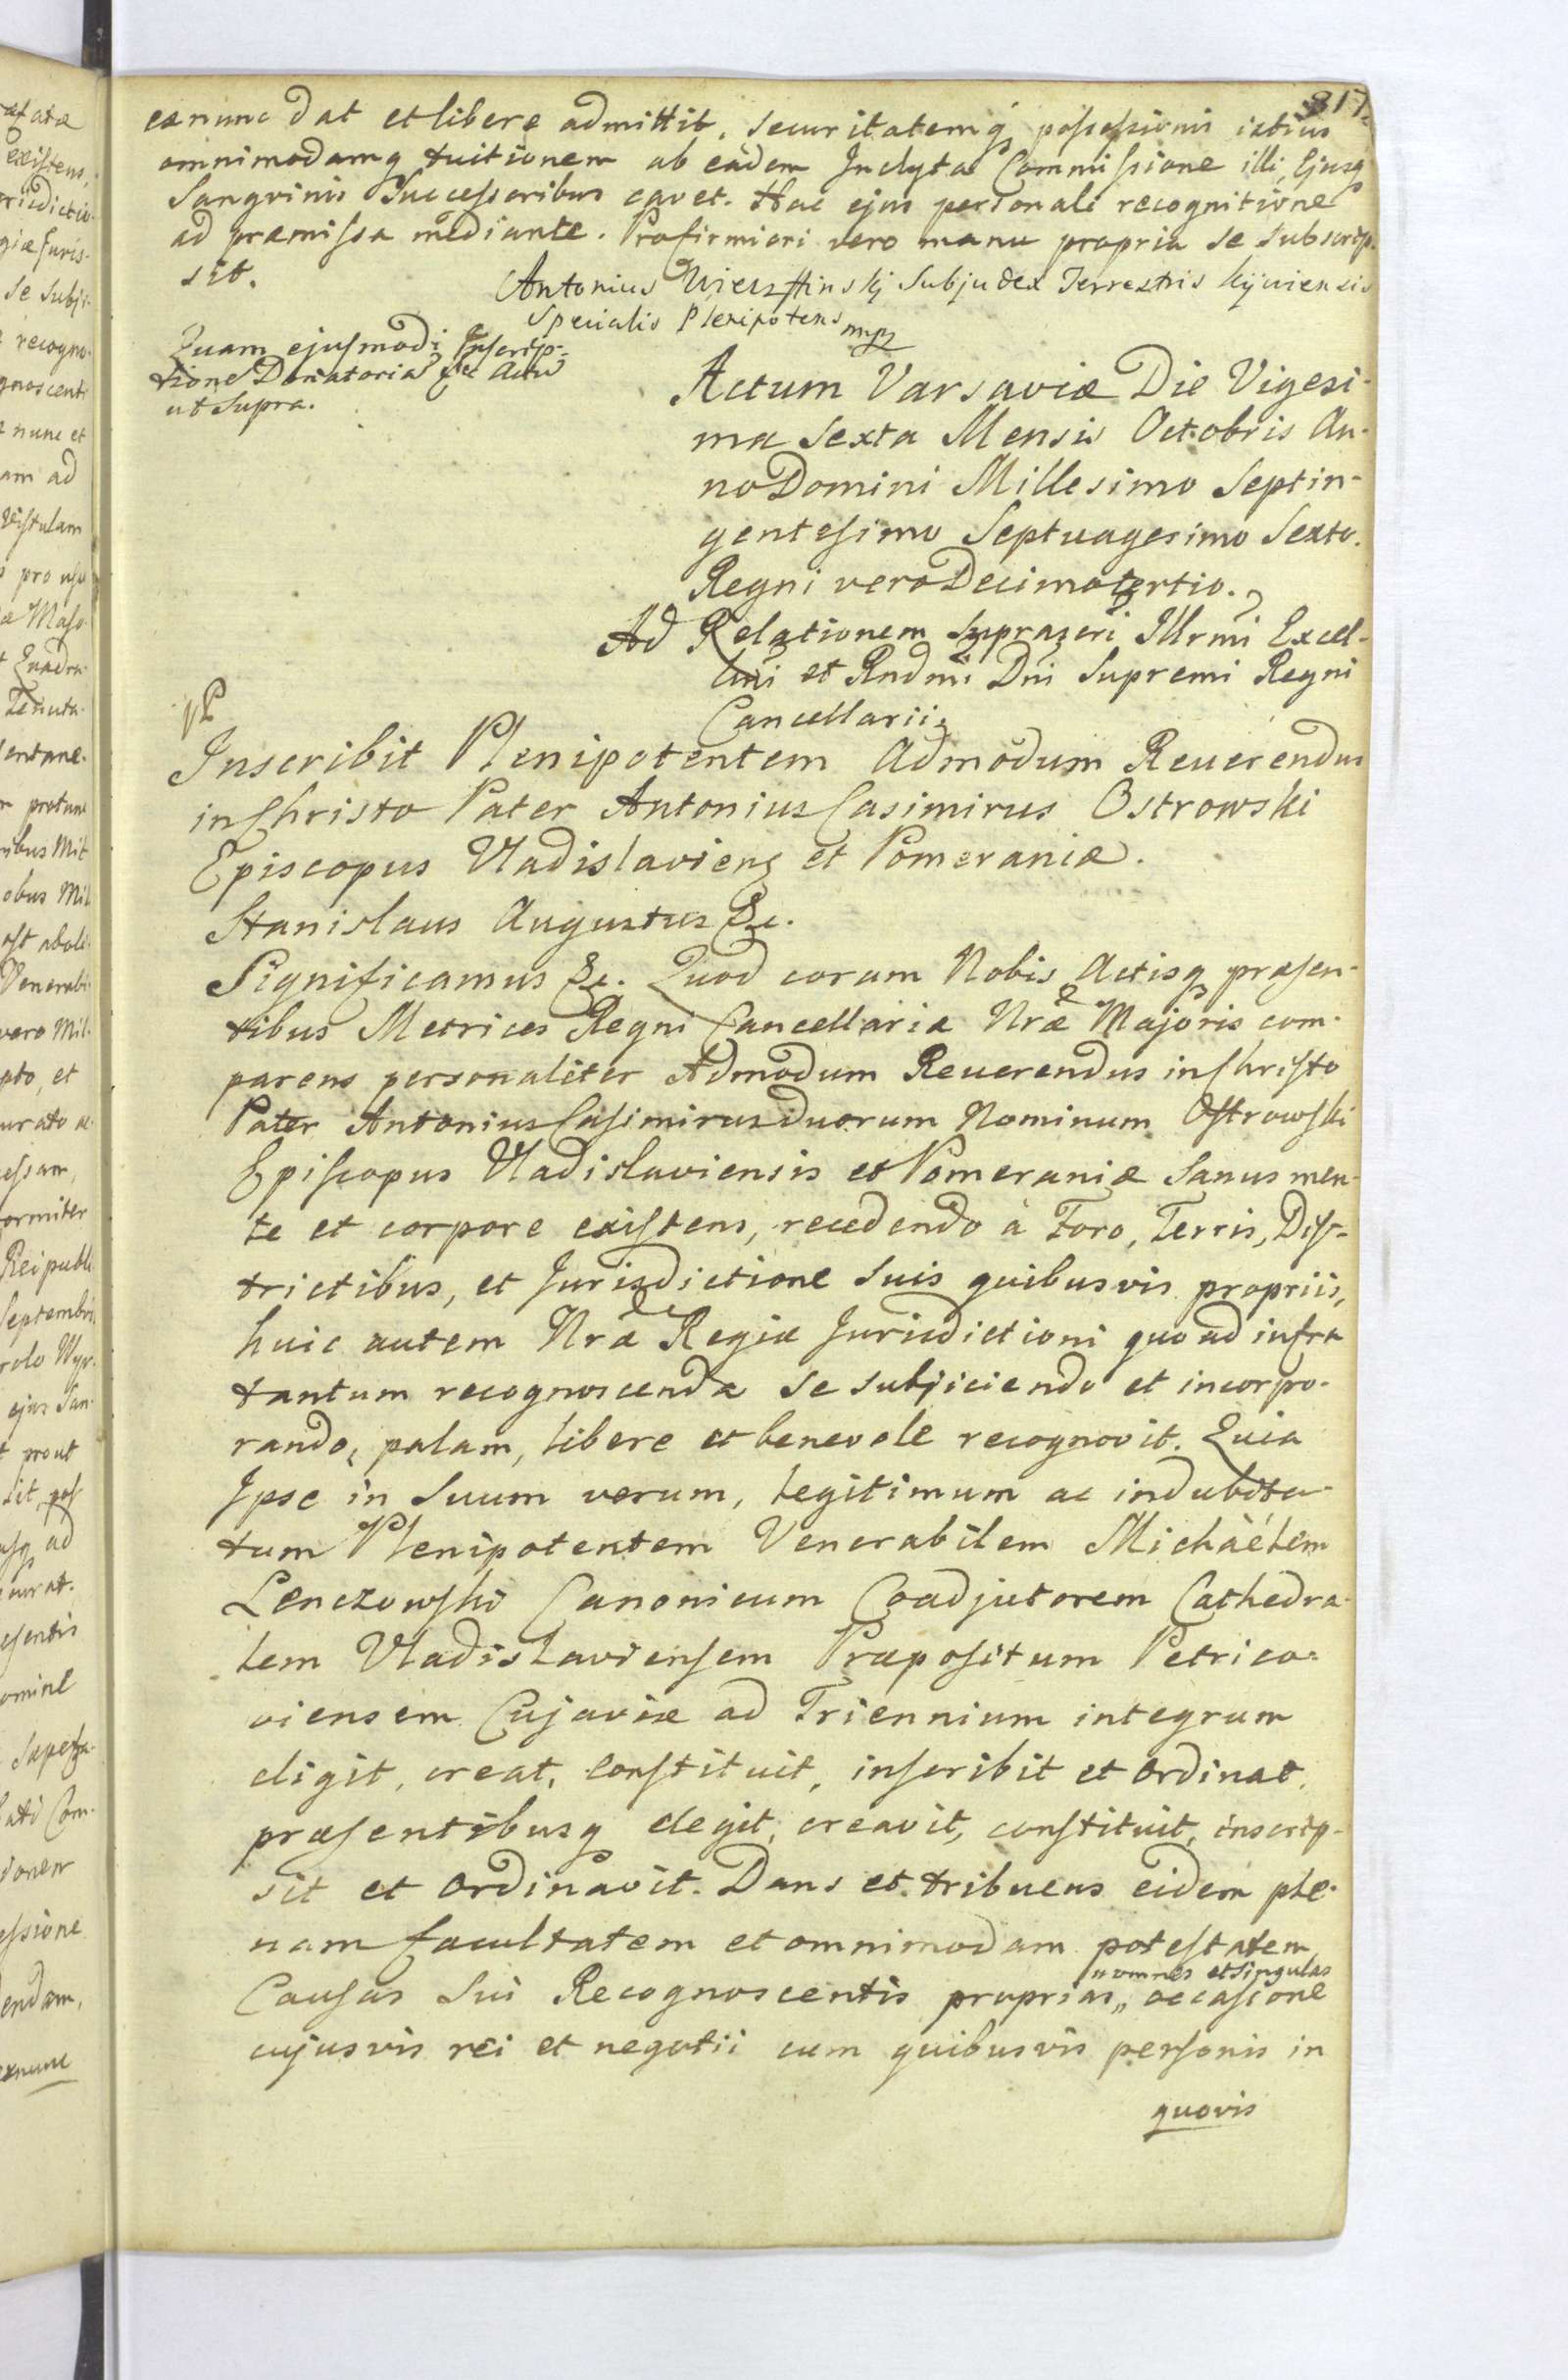 317.
exnunc dat et libere admittit, securitatemq possessionis istius
omnimodamq tuitionem ab eadem Inclyta Commissione illi, Ejusq
Sangvinis Successoribus cavet. Hac ejus personali recognitione
ad præmissa mediante. Pro firmiori vero manu propria se subscrip-
sit.
Antonius Wierzflinskj Subjudex Terrestris Kijoviensis
Specialis Plenipotens mpp
Quam ejusmodi Inscrip-
tione Donatoria &c Actu
ut Supra.
Actum Varsaviæ Die Vigesi-
ma Sexta Mensis Octobris An-
no Domini Millesimo Septin-
gentesimo Septuagesimo Sexto.
Regni vero Decimotertio.
Ad Relationem Suprascri Illrmi Excel-
lmi et Rndmi Dni Supremi Regni
Cancellarii.
Inscribit Plenipotentem Admodum Reuerendus
in Christo Pater Antonius Casimirus Ostrowski
Episcopus Vladislaviens et Pomeraniæ.
Stanislaus Augustus &c.
Significamus &c. Quod coram Nobis Actisq præsen-
tibus Metrices Regni Cancellariæ Nræ Majoris com-
parens personaliter Admodum Reuerendus in Christo
Pater Antonius Casimirus duorum Nominum Ostrowski
Episcopus Vladislaviensis et Pomeraniæ Sanus men-
te et corpore existens, recedendo à Foro, Terris, Dis-
trictibus, et Jurisdictione suis quibusvis propriis,
huic autem Nræ Regiæ Jurisdictioni quo ad infra
tantum recognoscenda se subjiciendo et incorpo-
rando, palam, libere et benevole recognovit. Quia
Ipse in Suum verum, legitimum ac indubita-
tum Plenipotentem Venerabilem Michaëlem
Lenczowski Canonicum Coadjutorem Cathedra-
lem Vladislaviensem Præpositum Petrico-
viensem Cujaviæ ad Triennium integrum
eligit, creat, constituit, inscribit et ordinat,
præsentibusq elegit, creavit, constituit, inscrip-
sit et ordinavit. Dans et tribuens eidem ple-
nam facultatem et omnimodam potestatem,
"omnes et singulas
Causas Sui Recognoscentis proprias,, occasione
cujusvis rei et negotii cum quibusvis personis in
quovis